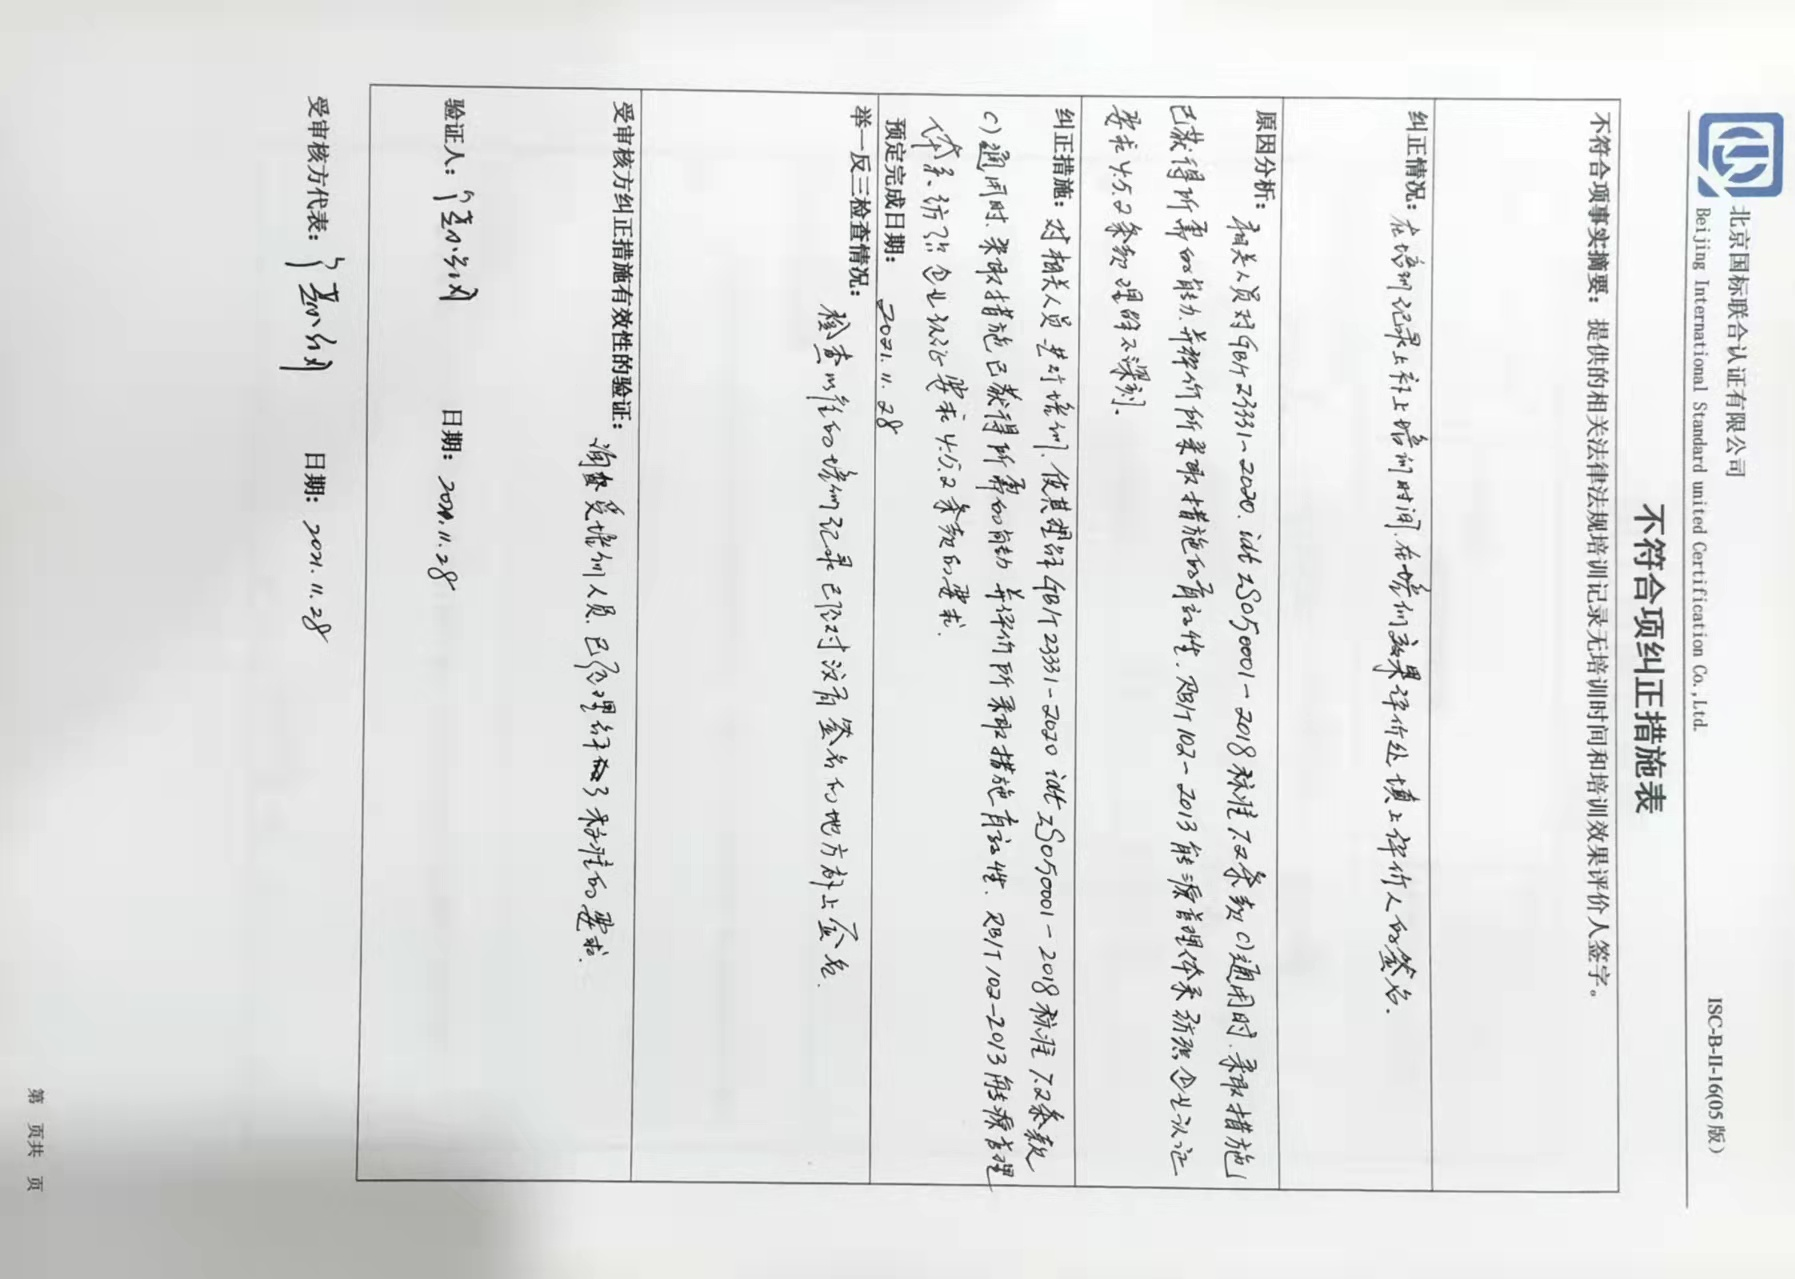 北京国标联合认证有限公司
Beijing International Standard united Certification Co.,Ltd.
ISC-B-II-16(05版)
不符合项纠正措施表
不符合项事实摘要：提供的相关法律法规培训记录无培训时间和培训效果评价人签字。
纠正情况：在培训记录上补上培训时间.在培训效果评价处填上评价人的签名.
原因分析：相关人员对GB/T23331-2020.idt ISO50001-2018标准7.2条款c)适用时.采取措施
已获得所需的能力.并评价所采取措施的有效性.RB/T102-2013能源管理体系 纺织企业认证
要求4.5.2条款理解不深刻.
纠正措施：对相关人员进行培训.使其理解GB/T23331-2020 idt ISO50001-2018标准7.2条款
c)适用时.采取措施已获得所需的能力 并评价所采取措施有效性.RB/T102-2013能源管理
体系.纺织企业认证要求4.5.2条款的要求.
预定完成日期：2021.11.28
举一反三检查情况：
检查以往的培训记录已经对没有签名的地方补上签名.
受审核方纠正措施有效性的验证：
询查受培训人员.已经理解了标准的要求.
验证人： 日期：2021.11.28
受审核方代表： 日期：2021.11.28
第 页共 页